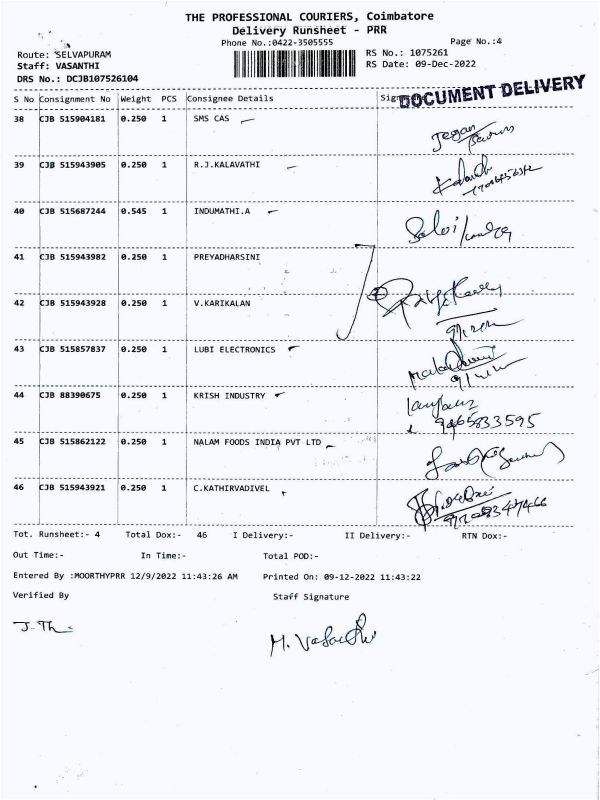 THE PROFESSIONAL COURIERS, Coimbatore
Delivery Runsheet - PRR
Phone No.:0422-3505555
Page No.:4
Route: SELVAPURAM
RS No.: 1075261
Staff: VASANTHI
RS Date: 09-Dec-2022
DRS No.: DCJB107526104
DOCUMENT DELIVERY
S No Consignment No Weight PCS Consignee Details
38 CJB 515904181 0.250 1 SMS CAS
Jegan
39 CJB 515943905 0.250 1 R.J.KALAVATHI
40 CJB 515687244 0.545 1 INDUMATHI.A
Selvi
41 CJB 515943982 0.250 1 PREYADHARSINI
42 CJB 515943928 0.250 1 V.KARIKALAN
43 CJB 515857837 0.250 1 LUBI ELECTRONICS
44 CJB 88390675 0.250 1 KRISH INDUSTRY
9465833595
45 CJB 515862122 0.250 1 NALAM FOODS INDIA PVT LTD
46 CJB 515943921 0.250 1 C.KATHIRVADIVEL
Tot. Runsheet:- 4 Total Dox:- 46 I Delivery:- II Delivery:- RTN Dox:-
Out Time:- In Time:- Total POD:-
Entered By :MOORTHYPRR 12/9/2022 11:43:26 AM Printed On: 09-12-2022 11:43:22
Verified By Staff Signature
M. Vasanthi